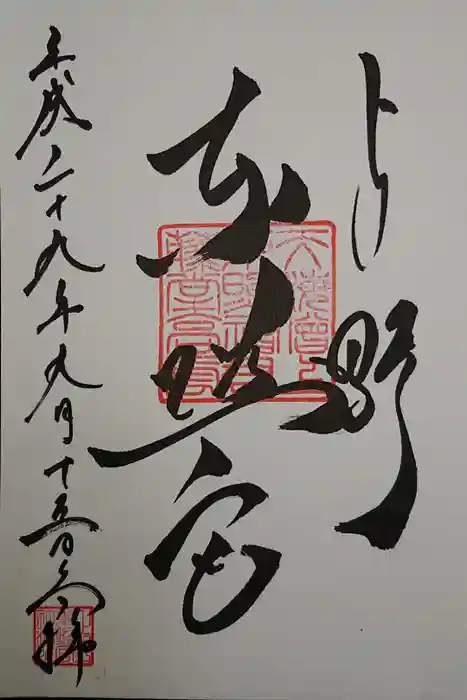 上野
東照宮
平成二十九年九月十五日参拝